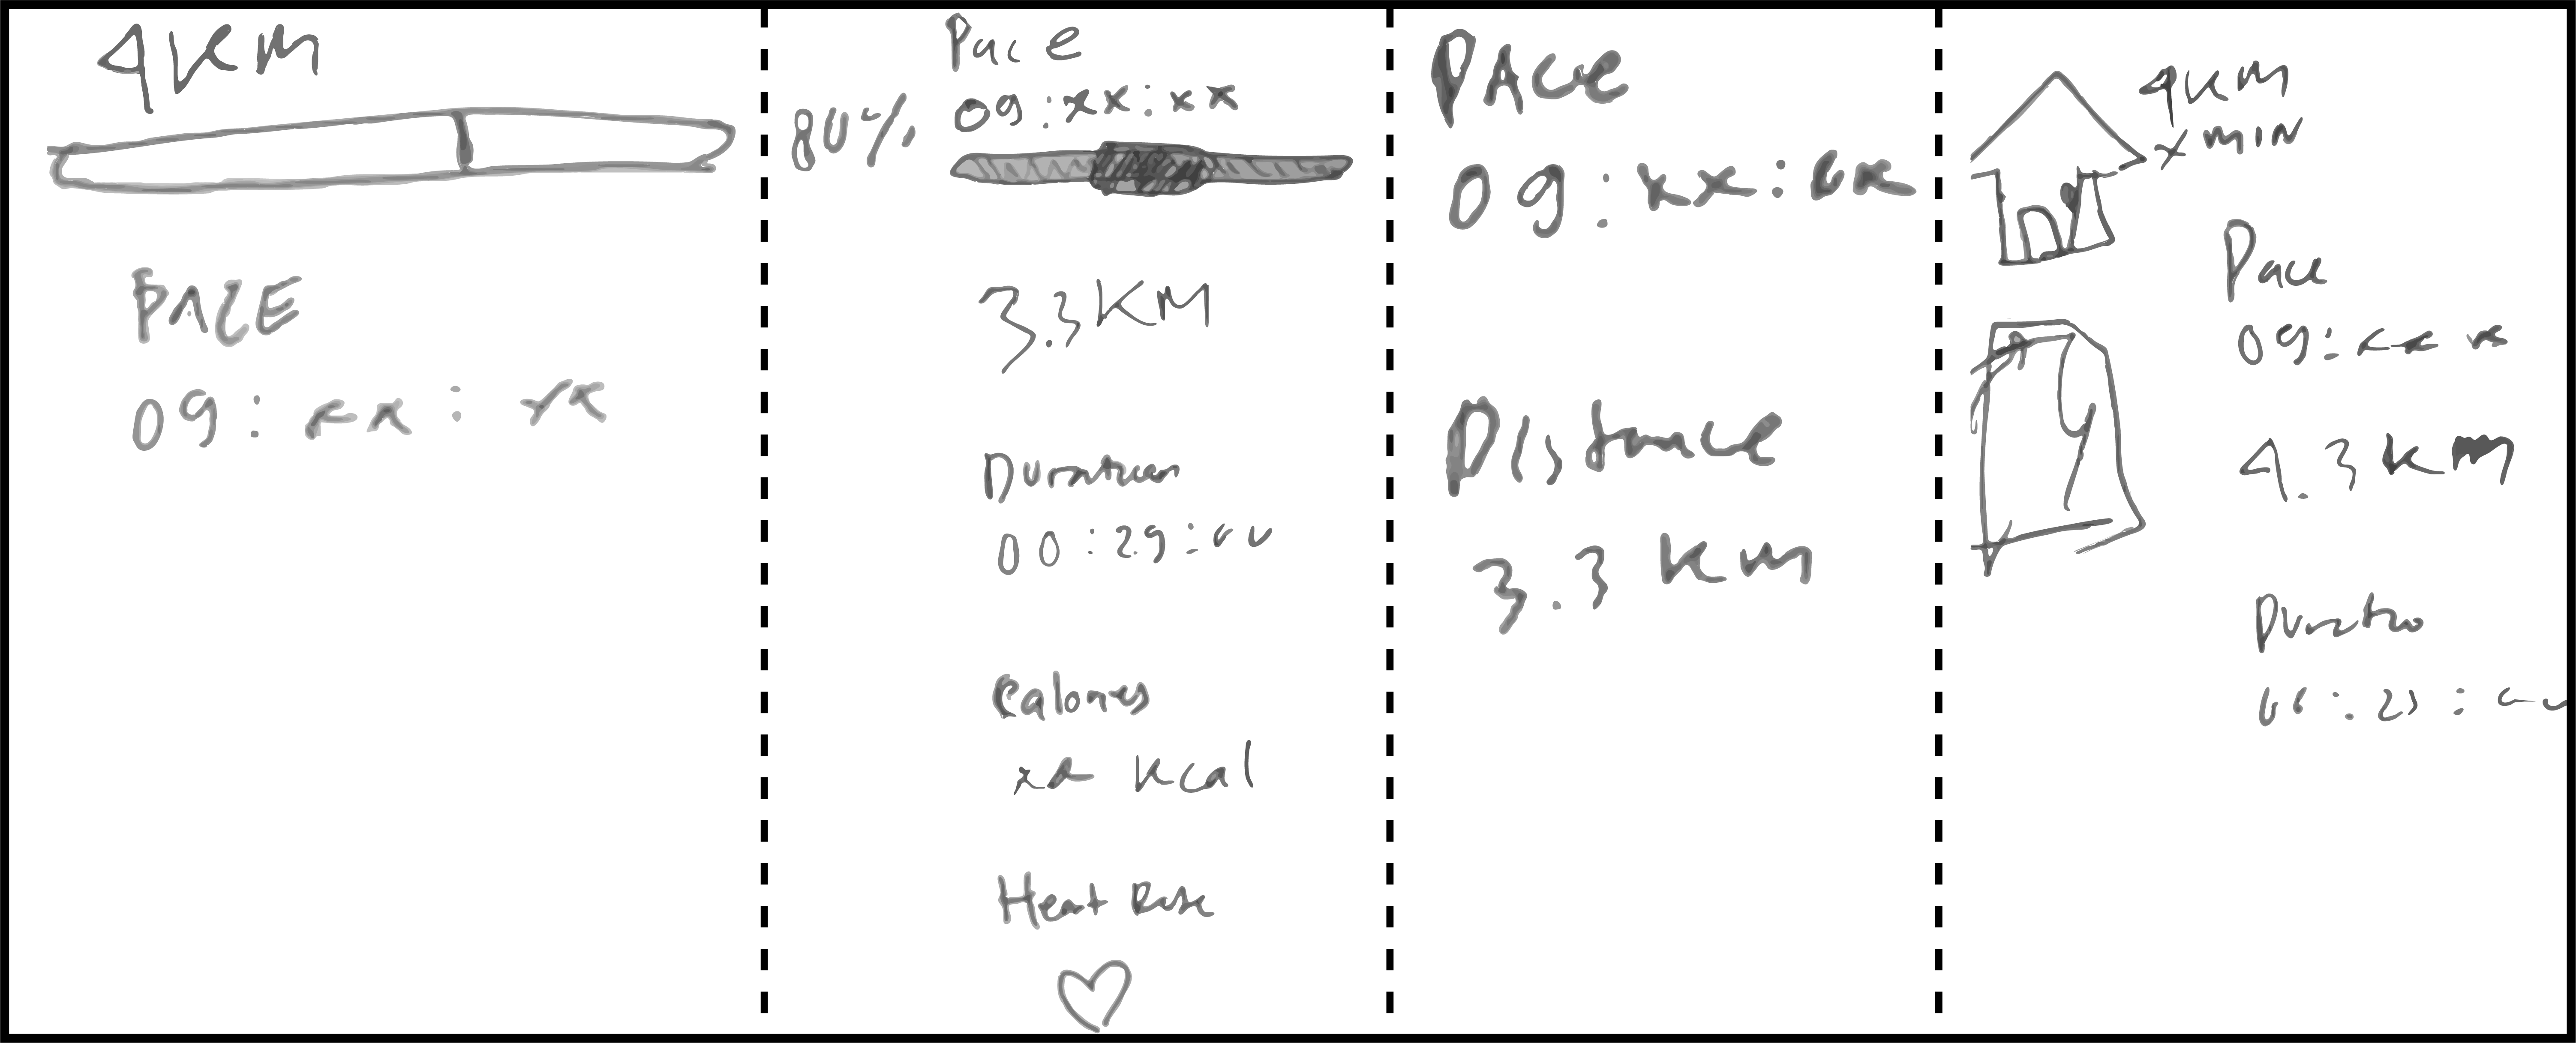 4KM
PACE
09:xx:xx
Pace
80%
09:xx:xx
3.3KM
Duration
00:29:00
Calories
xx Kcal
Heart Rate
PAce
09:xx:xx
Distance
3.3 KM
4KM
x min
Pace
09:xx x
4.3KM
Duratio